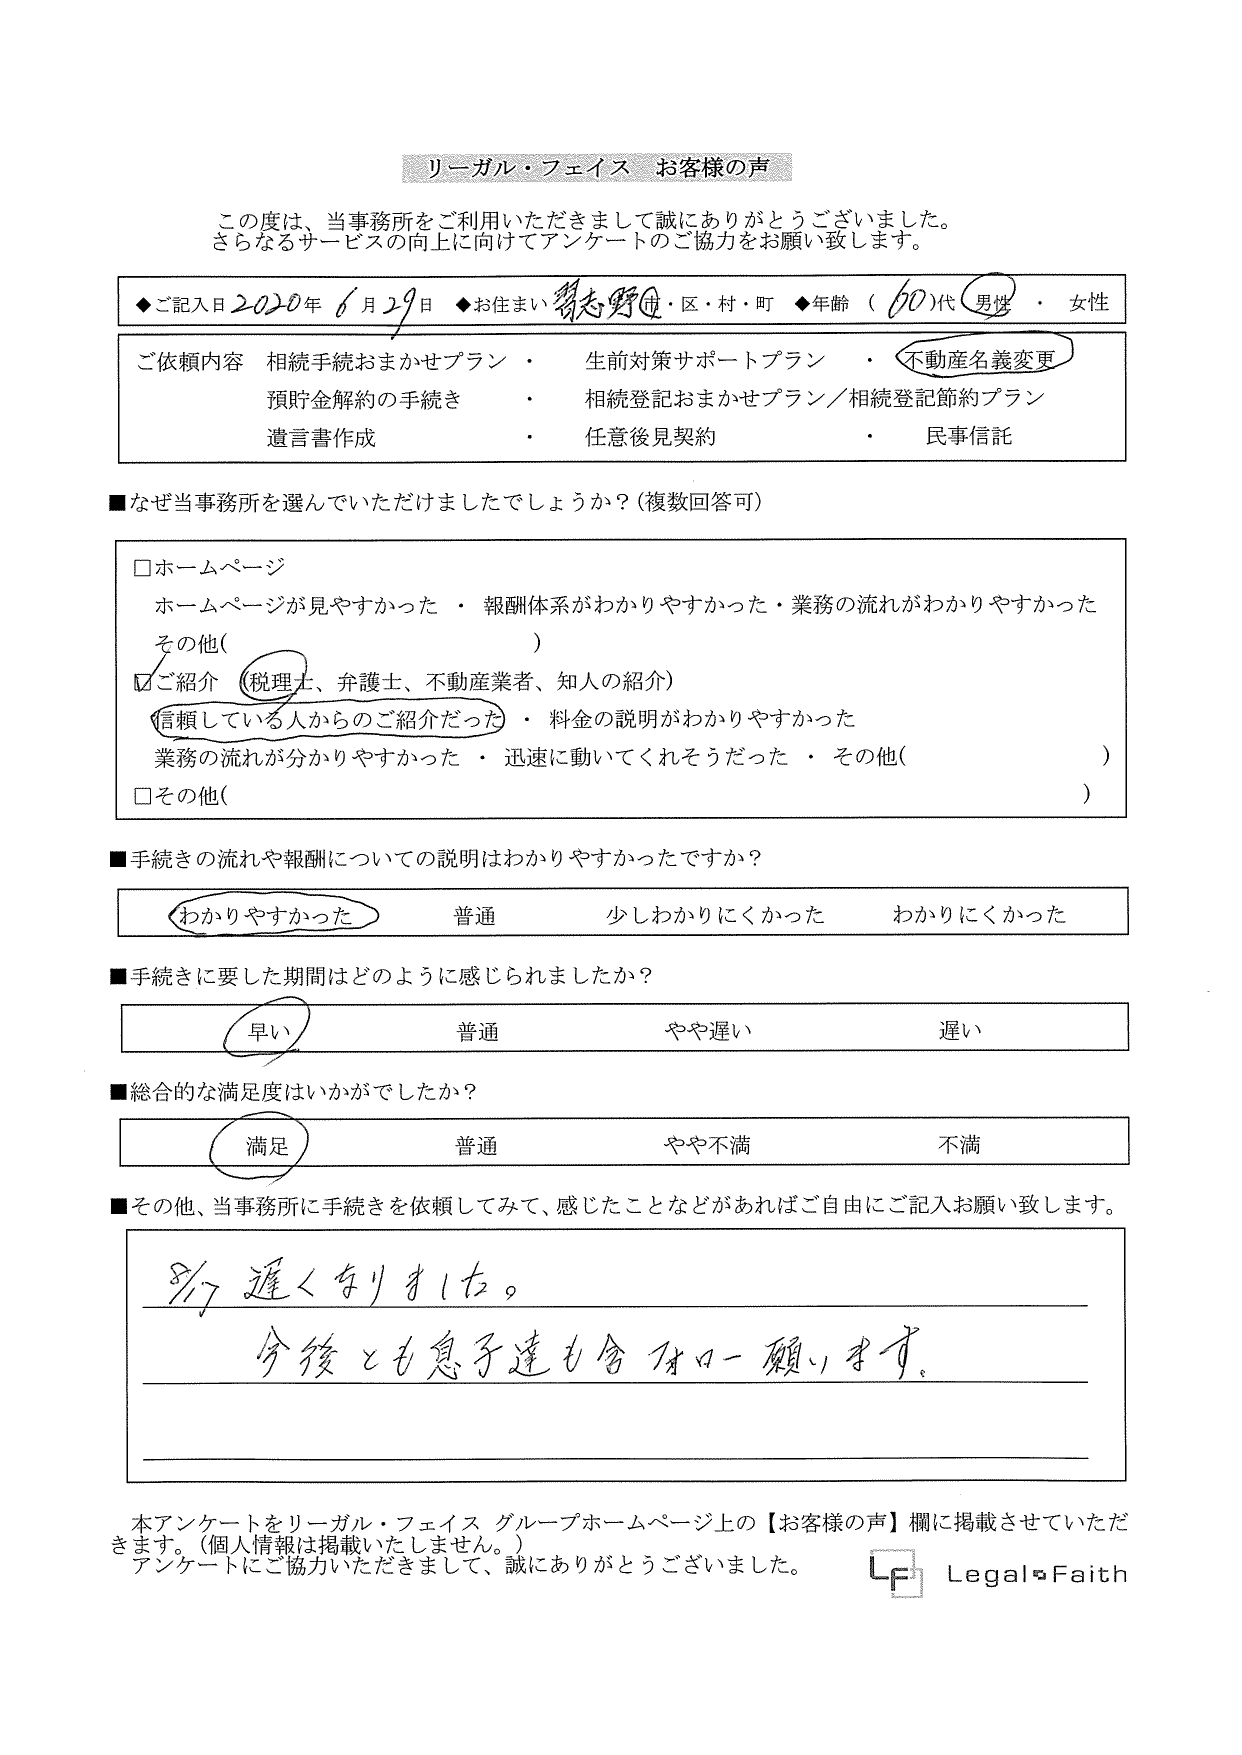 リーガル・フェイス　お客様の声
この度は、当事務所をご利用いただきまして誠にありがとうございました。
さらなるサービスの向上に向けてアンケートのご協力をお願い致します。
◆ご記入日2020年 6月29日　◆お住まい 習志野市・区・村・町　◆年齢（ 60 ）代　男性　・　女性
ご依頼内容　相続手続おまかせプラン　・　生前対策サポートプラン　・　不動産名義変更
預貯金解約の手続き　・　相続登記おまかせプラン／相続登記節約プラン
遺言書作成　・　任意後見契約　・　民事信託
■なぜ当事務所を選んでいただけましたでしょうか？(複数回答可)
□ホームページ
ホームページが見やすかった　・　報酬体系がわかりやすかった・業務の流れがわかりやすかった
その他(　　　　　　　　　　　　　　)
☑ご紹介　(税理士、弁護士、不動産業者、知人の紹介)
信頼している人からのご紹介だった　・　料金の説明がわかりやすかった
業務の流れが分かりやすかった　・　迅速に動いてくれそうだった　・　その他(　　　　　　　　　)
□その他(　　　　　　　　　　　　　　　　　　　　　　　　　　　　　　　　　　　　　　　)
■手続きの流れや報酬についての説明はわかりやすかったですか？
わかりやすかった　普通　少しわかりにくかった　わかりにくかった
■手続きに要した期間はどのように感じられましたか？
早い　普通　やや遅い　遅い
■総合的な満足度はいかがでしたか？
満足　普通　やや不満　不満
■その他、当事務所に手続きを依頼してみて、感じたことなどがあればご自由にご記入お願い致します。
8/17 遅くなりました。
今後とも息子達も含フォロー願います。
本アンケートをリーガル・フェイス グループホームページ上の【お客様の声】欄に掲載させていただ
きます。（個人情報は掲載いたしません。）
アンケートにご協力いただきまして、誠にありがとうございました。
LF Legal Faith